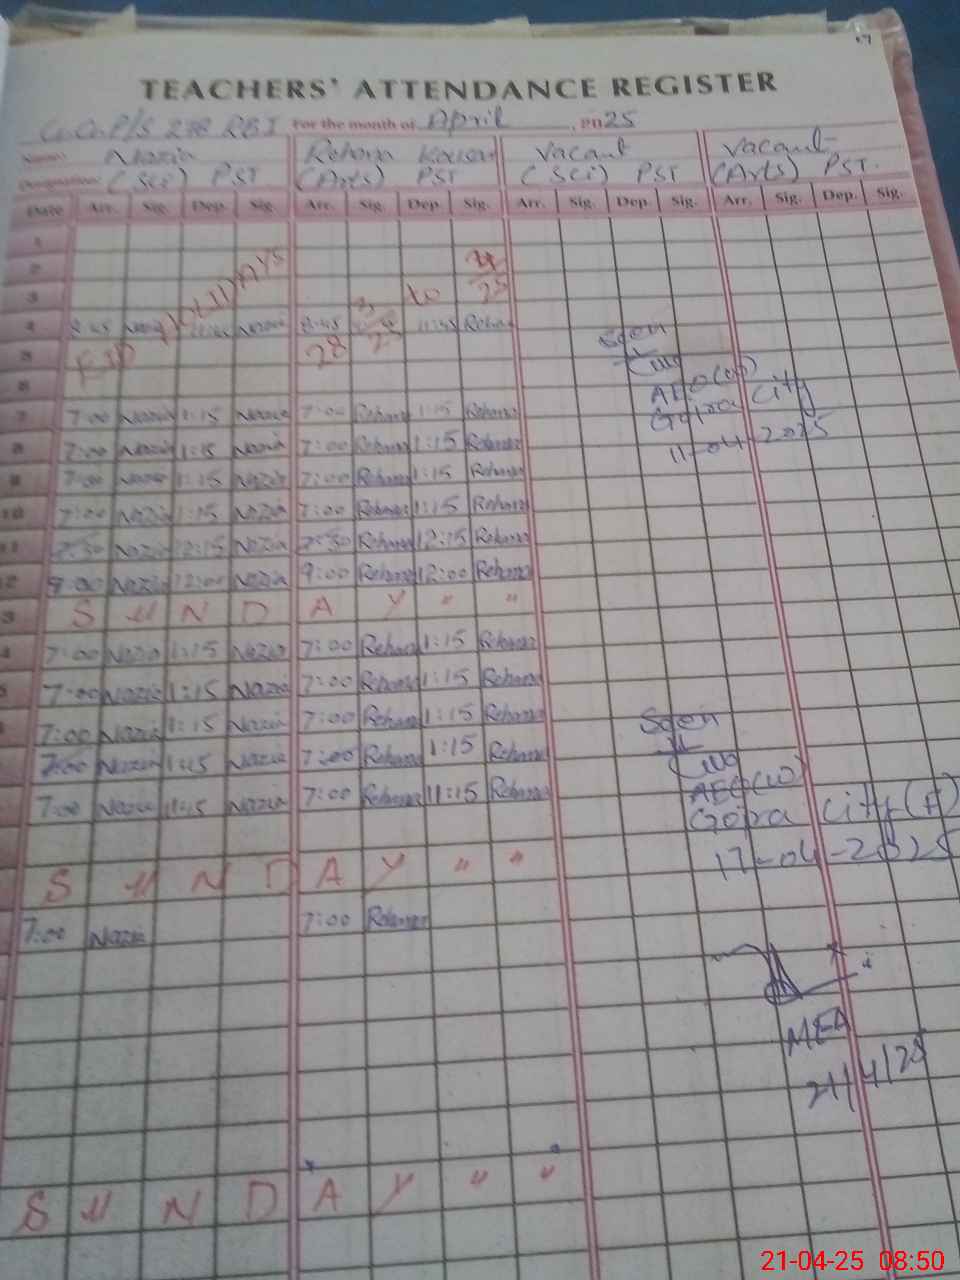 TEACHERS' ATTENDANCE REGISTER
P/S 278 RBI For the month of April , 2025
Name: Nazia Rehana Kousar Vacant Vacant
Designation: (Sci) PST (Arts) PST (Sci) PST (Arts) PST.
Date Arr. Sig. Dep. Sig. Arr. Sig. Dep. Sig. Arr. Sig. Dep. Sig. Arr. Sig. Dep. Sig.
1
2
3
EID HOLIDAYS 28 3 25 to 25
4 8:45 Nazia Nazia 8:45 Rehana
5
Seen
6
AEO
7 7:00 Nazia 1:15 Nazia 7:00 Rehana 1:15 Rehana
Gojra City
8 7:00 Nazia 1:15 Nazia 7:00 Rehana 1:15 Rehana
11-04-2025
9 7:00 Nazia 1:15 Nazia 7:00 Rehana 1:15 Rehana
10 7:00 Nazia 1:15 Nazia 7:00 Rehana 1:15 Rehana
11 7:30 Nazia 12:15 Nazia 7:30 Rehana 12:15 Rehana
2 9:00 Nazia 12:00 Nazia 9:00 Rehana 12:00 Rehana
3 S U N D A Y " "
4 7:00 Nazia 1:15 Nazia 7:00 Rehana 1:15 Rehana
5 7:00 Nazia 1:15 Nazia 7:00 Rehana 1:15 Rehana
7:00 Nazia 1:15 Nazia 7:00 Rehana 1:15 Rehana
Seen
7:00 Nazia 1:15 Nazia 7:00 Rehana 1:15 Rehana
AEO (W)
7:00 Nazia 11:15 Nazia 7:00 Rehana 11:15 Rehana
Gojra City (F)
17-04-2025
S U N D A Y " "
7:00 Nazia 7:00 Rehana
MEA
21/4/25
S U N D A Y " "
21-04-25 08:50